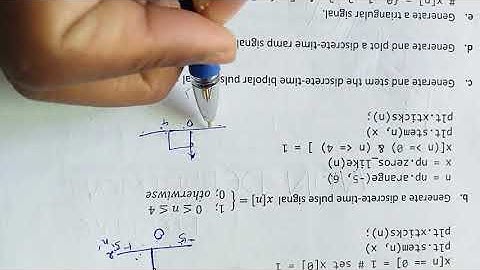 x[n == 0] = 1 # set x[0] = 1
plt.stem(n, x)
plt.xticks(n);
b. Generate a discrete-time pulse signal x[n] = { 1; 0 ≤ n ≤ 4
0; otherwiwse
n = np.arange(-5, 6)
x = np.zeros_like(n)
x[(n >= 0) & (n <= 4) ] = 1
plt.stem(n, x)
plt.xticks(n);
0 4
c. Generate and stem the discrete-time bipolar
d. Generate and plot a discrete-time ramp signal
e. Generate a triangular signal.